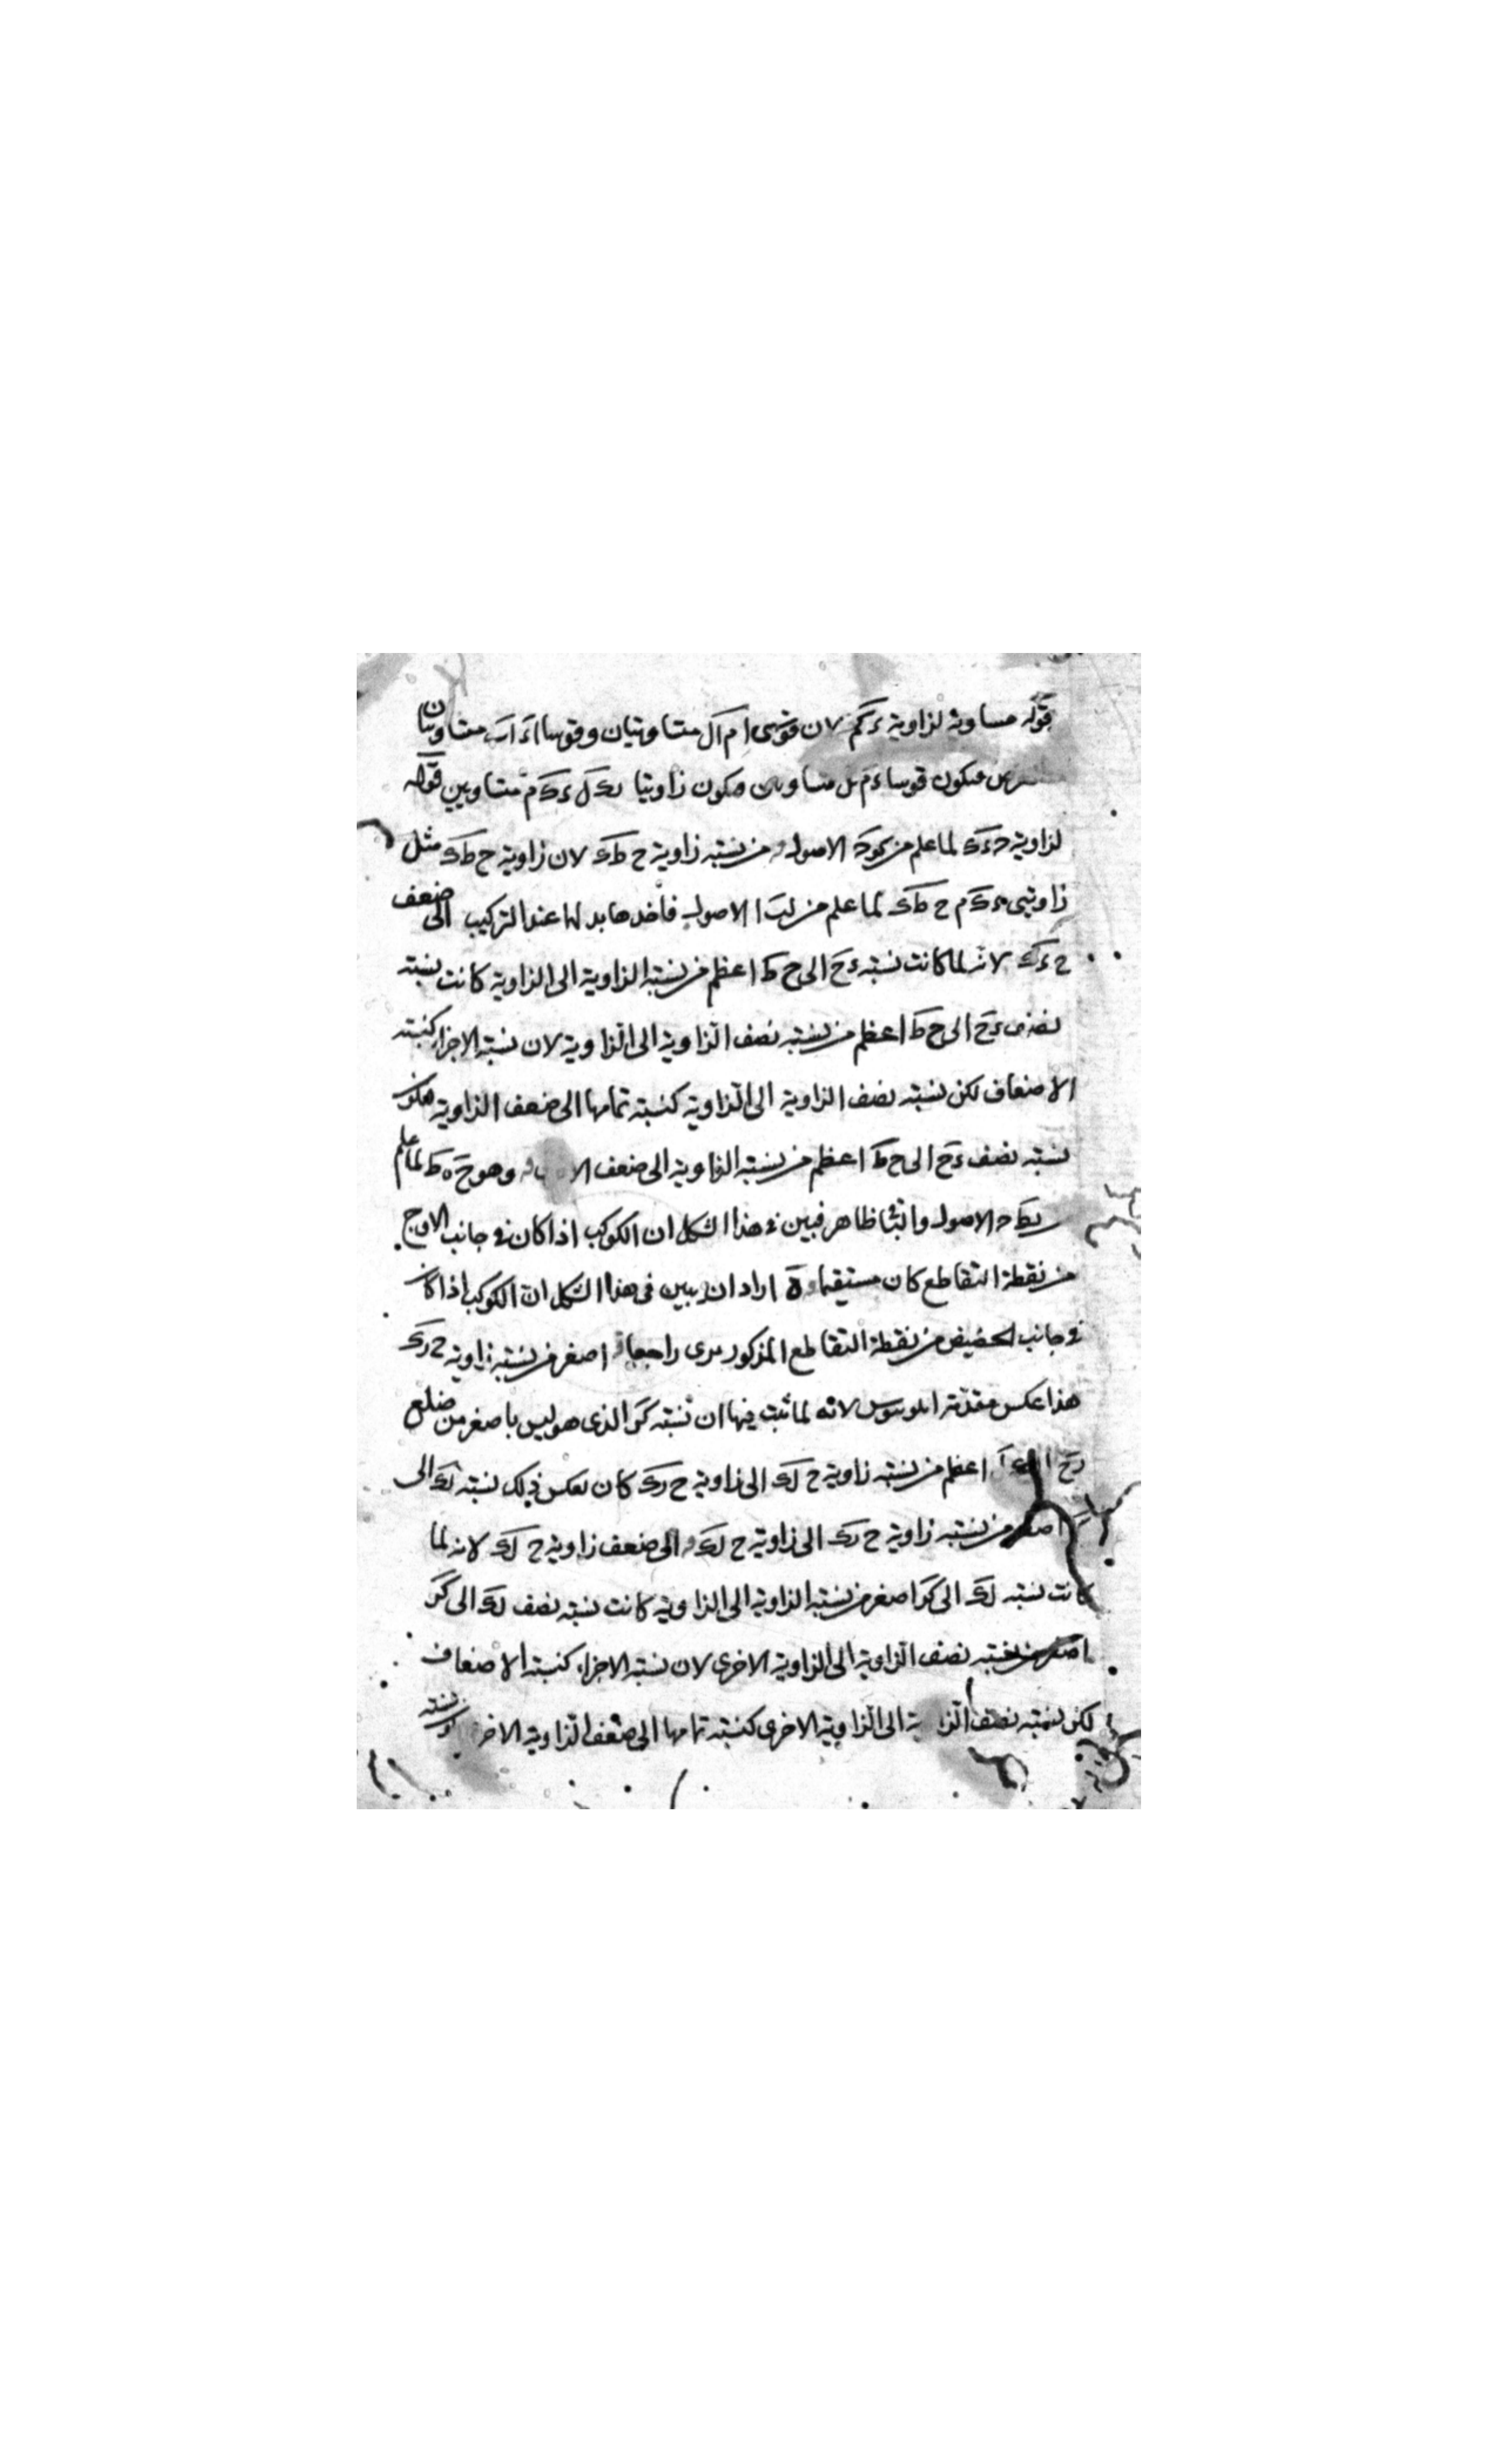 قوله مساوية لزاوية ءكم لان قوسى ام ال متساويتان وقوسا اء اب متساويتان
فيكون قوسا ءم بل متساويين فيكون زاويتا بكل ءكم متساويين قوله
لزاوية حءك لما علم من كوحه الاصول من نسبة زاوية ح طك لان زاوية ح طك مثل
زاويتى ءكم ح طك لما علم من لب ا الاصول فاخدها بدلها عند التركيب الى ضعف
حءك لانه لما كانت نسبة ءح الى ح ط اعظم من نسبة الزاوية الى الزاوية كانت نسبة
نصف ءح الى ح ط اعظم من نسبة نصف الزاوية الى الزاوية لان نسبة الاجزاء كنسبة
الاضعاف لكن نسبة نصف الزاوية الى الزاوية كنسبة تمامها الى ضعف الزاوية فيكون
نسبة نصف ءح الى ح ط اعظم من نسبة الزاوية الى ضعف وهو ح ه ط لما علم
الاصول والبقا ظاهر فبين فى هذا الشكل ان الكوكب اذا كان فى جانب الاوج
من نقطة التقاطع كان مستقيما اراد ان يبين فى هذا الشكل ان الكوكب اذا كان
فى جانب الحضيض من نقطة التقاطع المذكور يرى راجعا اصغر من نسبة زاوية ح رك
هذا عكس مقدمة ابلونيوس لانه لما ثبت فيها ان نسبة كر الذى هو ليس باصغر من ضلع
رح اعظم من نسبة زاوية ح لك الى زاوية ح رك كان بعكس ذلك نسبة لك الى
اصغر من نسبة زاوية ح رك الى زاوية ح لك الى ضعف زاوية ح لك لانه لما
كانت نسبة لك الى كر اصغر من نسبة الزاوية الى الزاوية كانت نسبة نصف لك الى كر
اصغر من نسبة نصف الزاوية الى الزاوية الاخرى لان نسبة الاجزاء كنسبة الاضعاف
لكن نسبة نصف الى الزاوية الاخرى كنسبة تمامها الى ضعف الزاوية نسبة